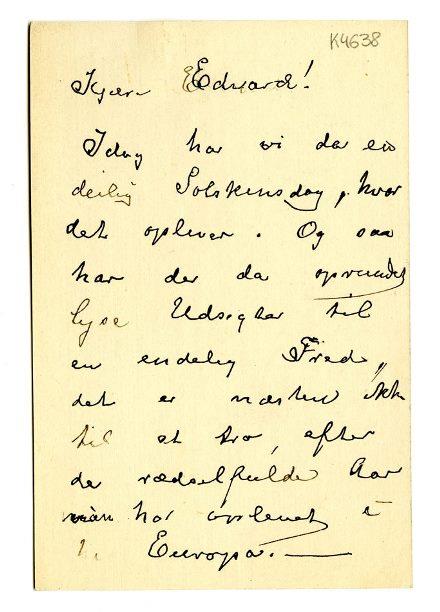 K4638
Kjære Eduard!
Idag har vi da en
deilig Solskinsdag, hvor
det oplever. Og saa
har der da oprundet
lyse Udsigter til
en endelig Fred,
det er næsten ikke
til at tro, efter
de rædselfulde Aar
man har oplevet i
Europa.